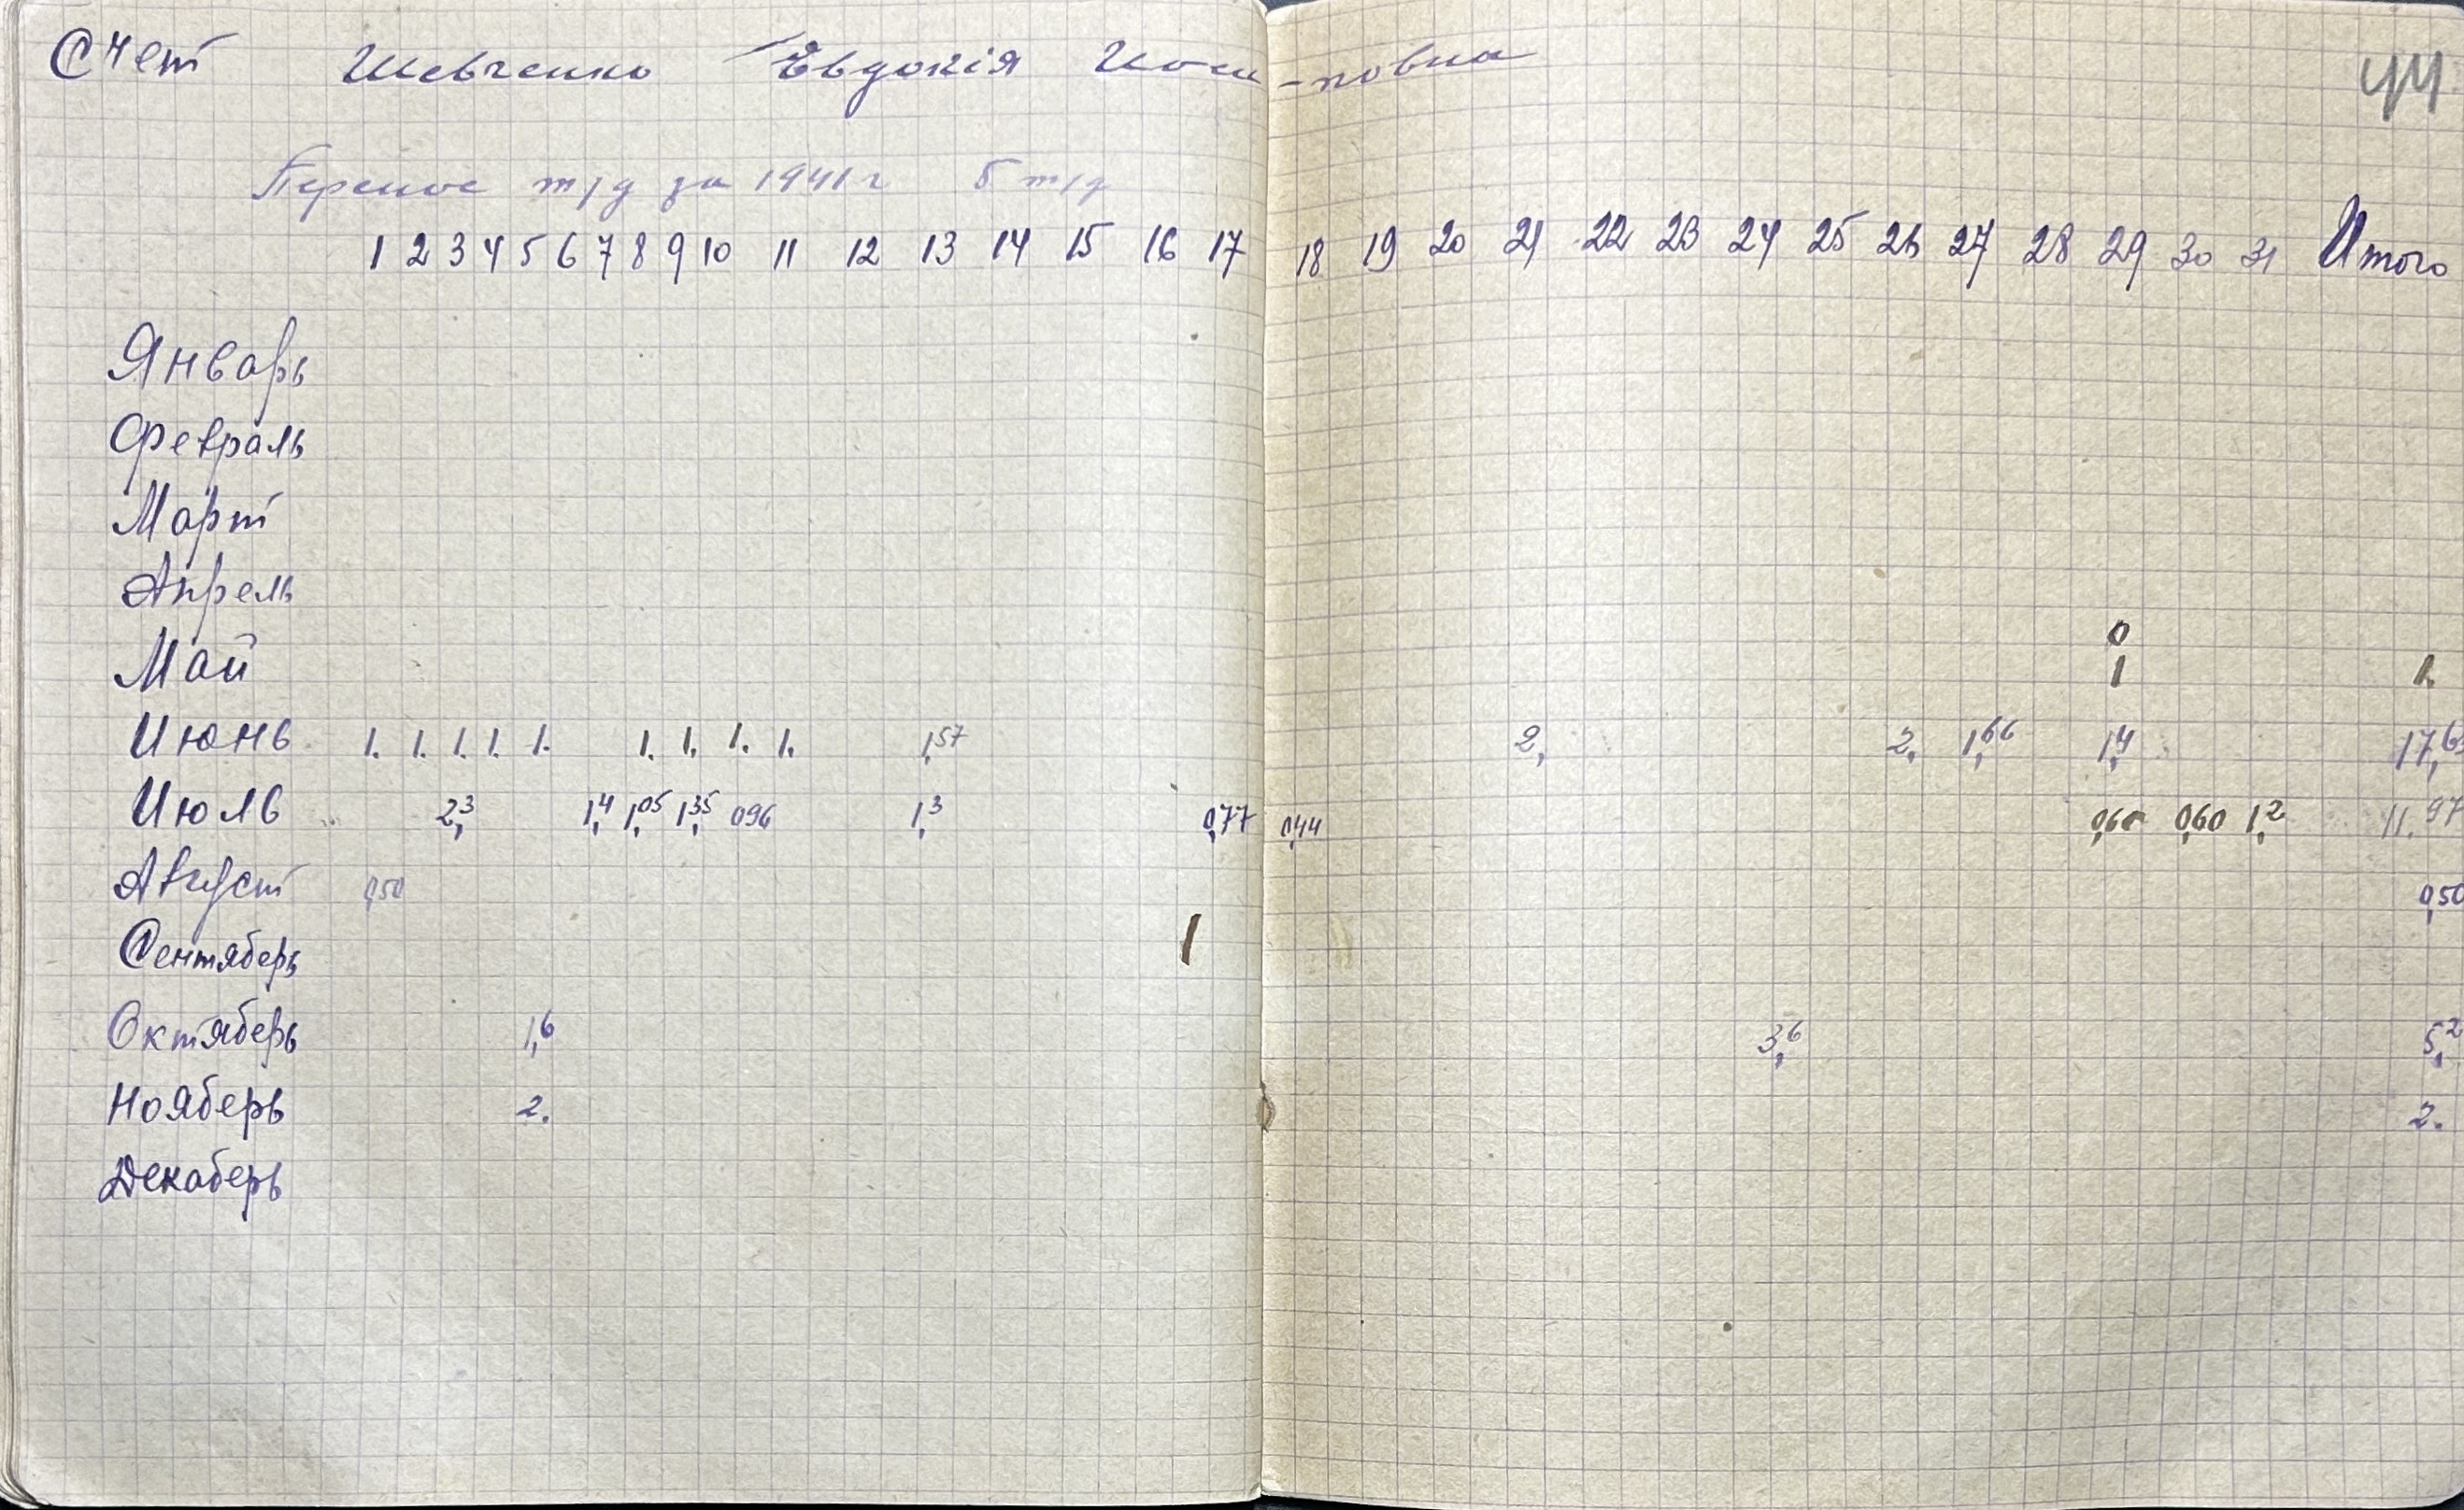 Счет Шевченко Евдокія Иоси-повна 44
Перенос т/д за 1941 г 5 т/д
1 2 3 4 5 6 7 8 9 10 11 12 13 14 15 16 17 18 19 20 21 22 23 24 25 26 27 28 29 30 31 Итого
Январь
Февраль
Март
Апрель
0
Май 1 1.
Июнь 1. 1. 1. 1. 1. 1. 1. 1. 1. 1,57 2, 2. 1,66 1,4 17,6
Июль 2,3 1,4 1,05 1,35 096 1,3 0,77 0,44 0,60 0,60 1,2 11.97
Август 0,50 0,50
Сентяберь 1
Октяберь 1,6 3,6 5,2
Нояберь 2. 2.
Декаберь